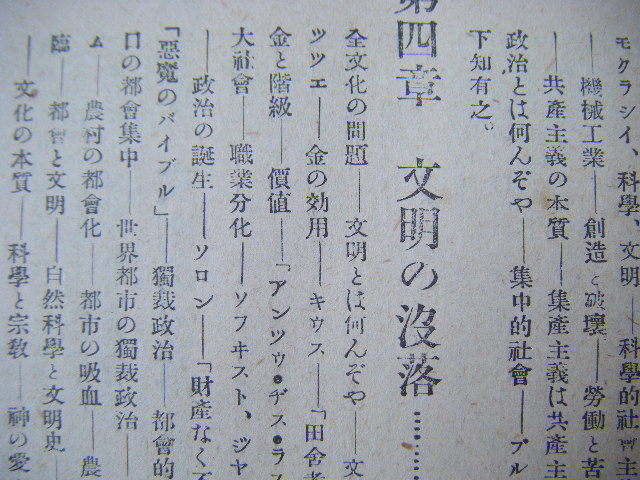 モクラシイ、科學、文明——科學的社會主
——機械工業——創造と破壞——勞働と苦
——共產主義の本質——集產主義は共產主
政治とは何んぞや——集中的社會——ブル
下知有之。
第四章 文明の沒落………
全文化の問題——文明とは何んぞや——文
ツツエ——金の効用——キウス——「田舍者
金と階級——價値——「アンツウ・ヂス・ラス
大社會——職業分化——ソフヰスト、ジヤ
——政治の誕生——ソロン——「財產なくて
「惡魔のバイブル」——獨裁政治——都會的
口の都會集中——世界都市の獨裁政治——
ム——農村の都會化——都市の吸血——農
臨——都會と文明——自然科學と文明史——
——文化の本質——科學と宗敎——神の愛